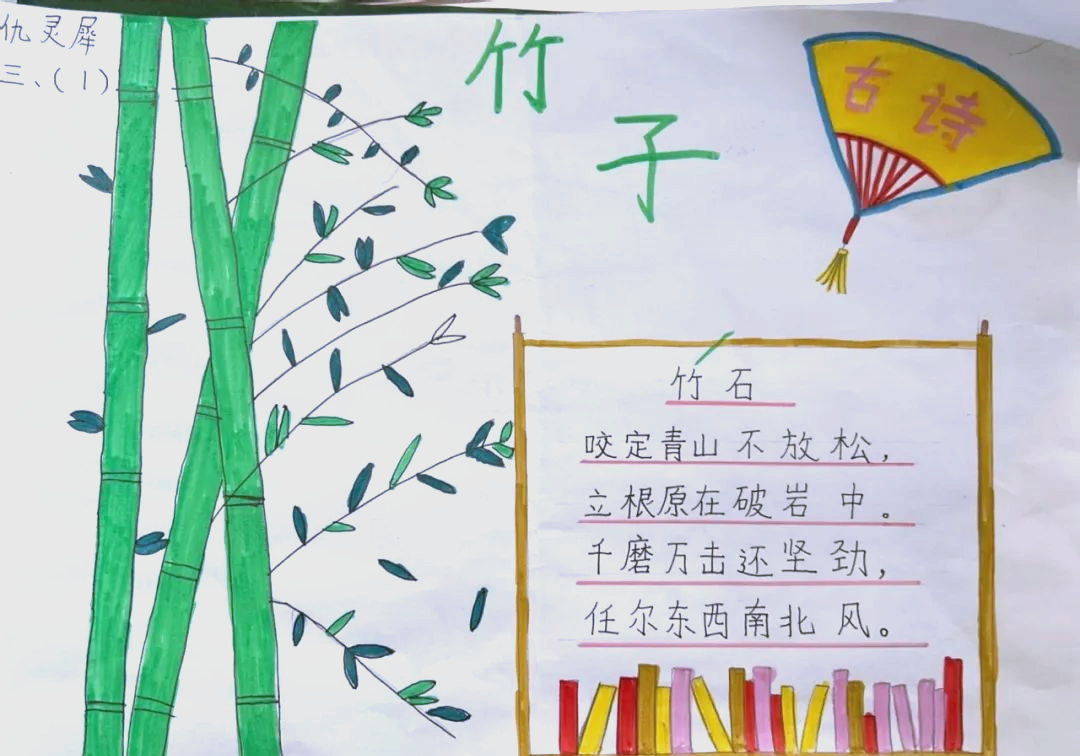 仇灵犀
三、(1)
竹子
古诗
竹石
咬定青山不放松，
立根原在破岩中。
千磨万击还坚劲，
任尔东西南北风。